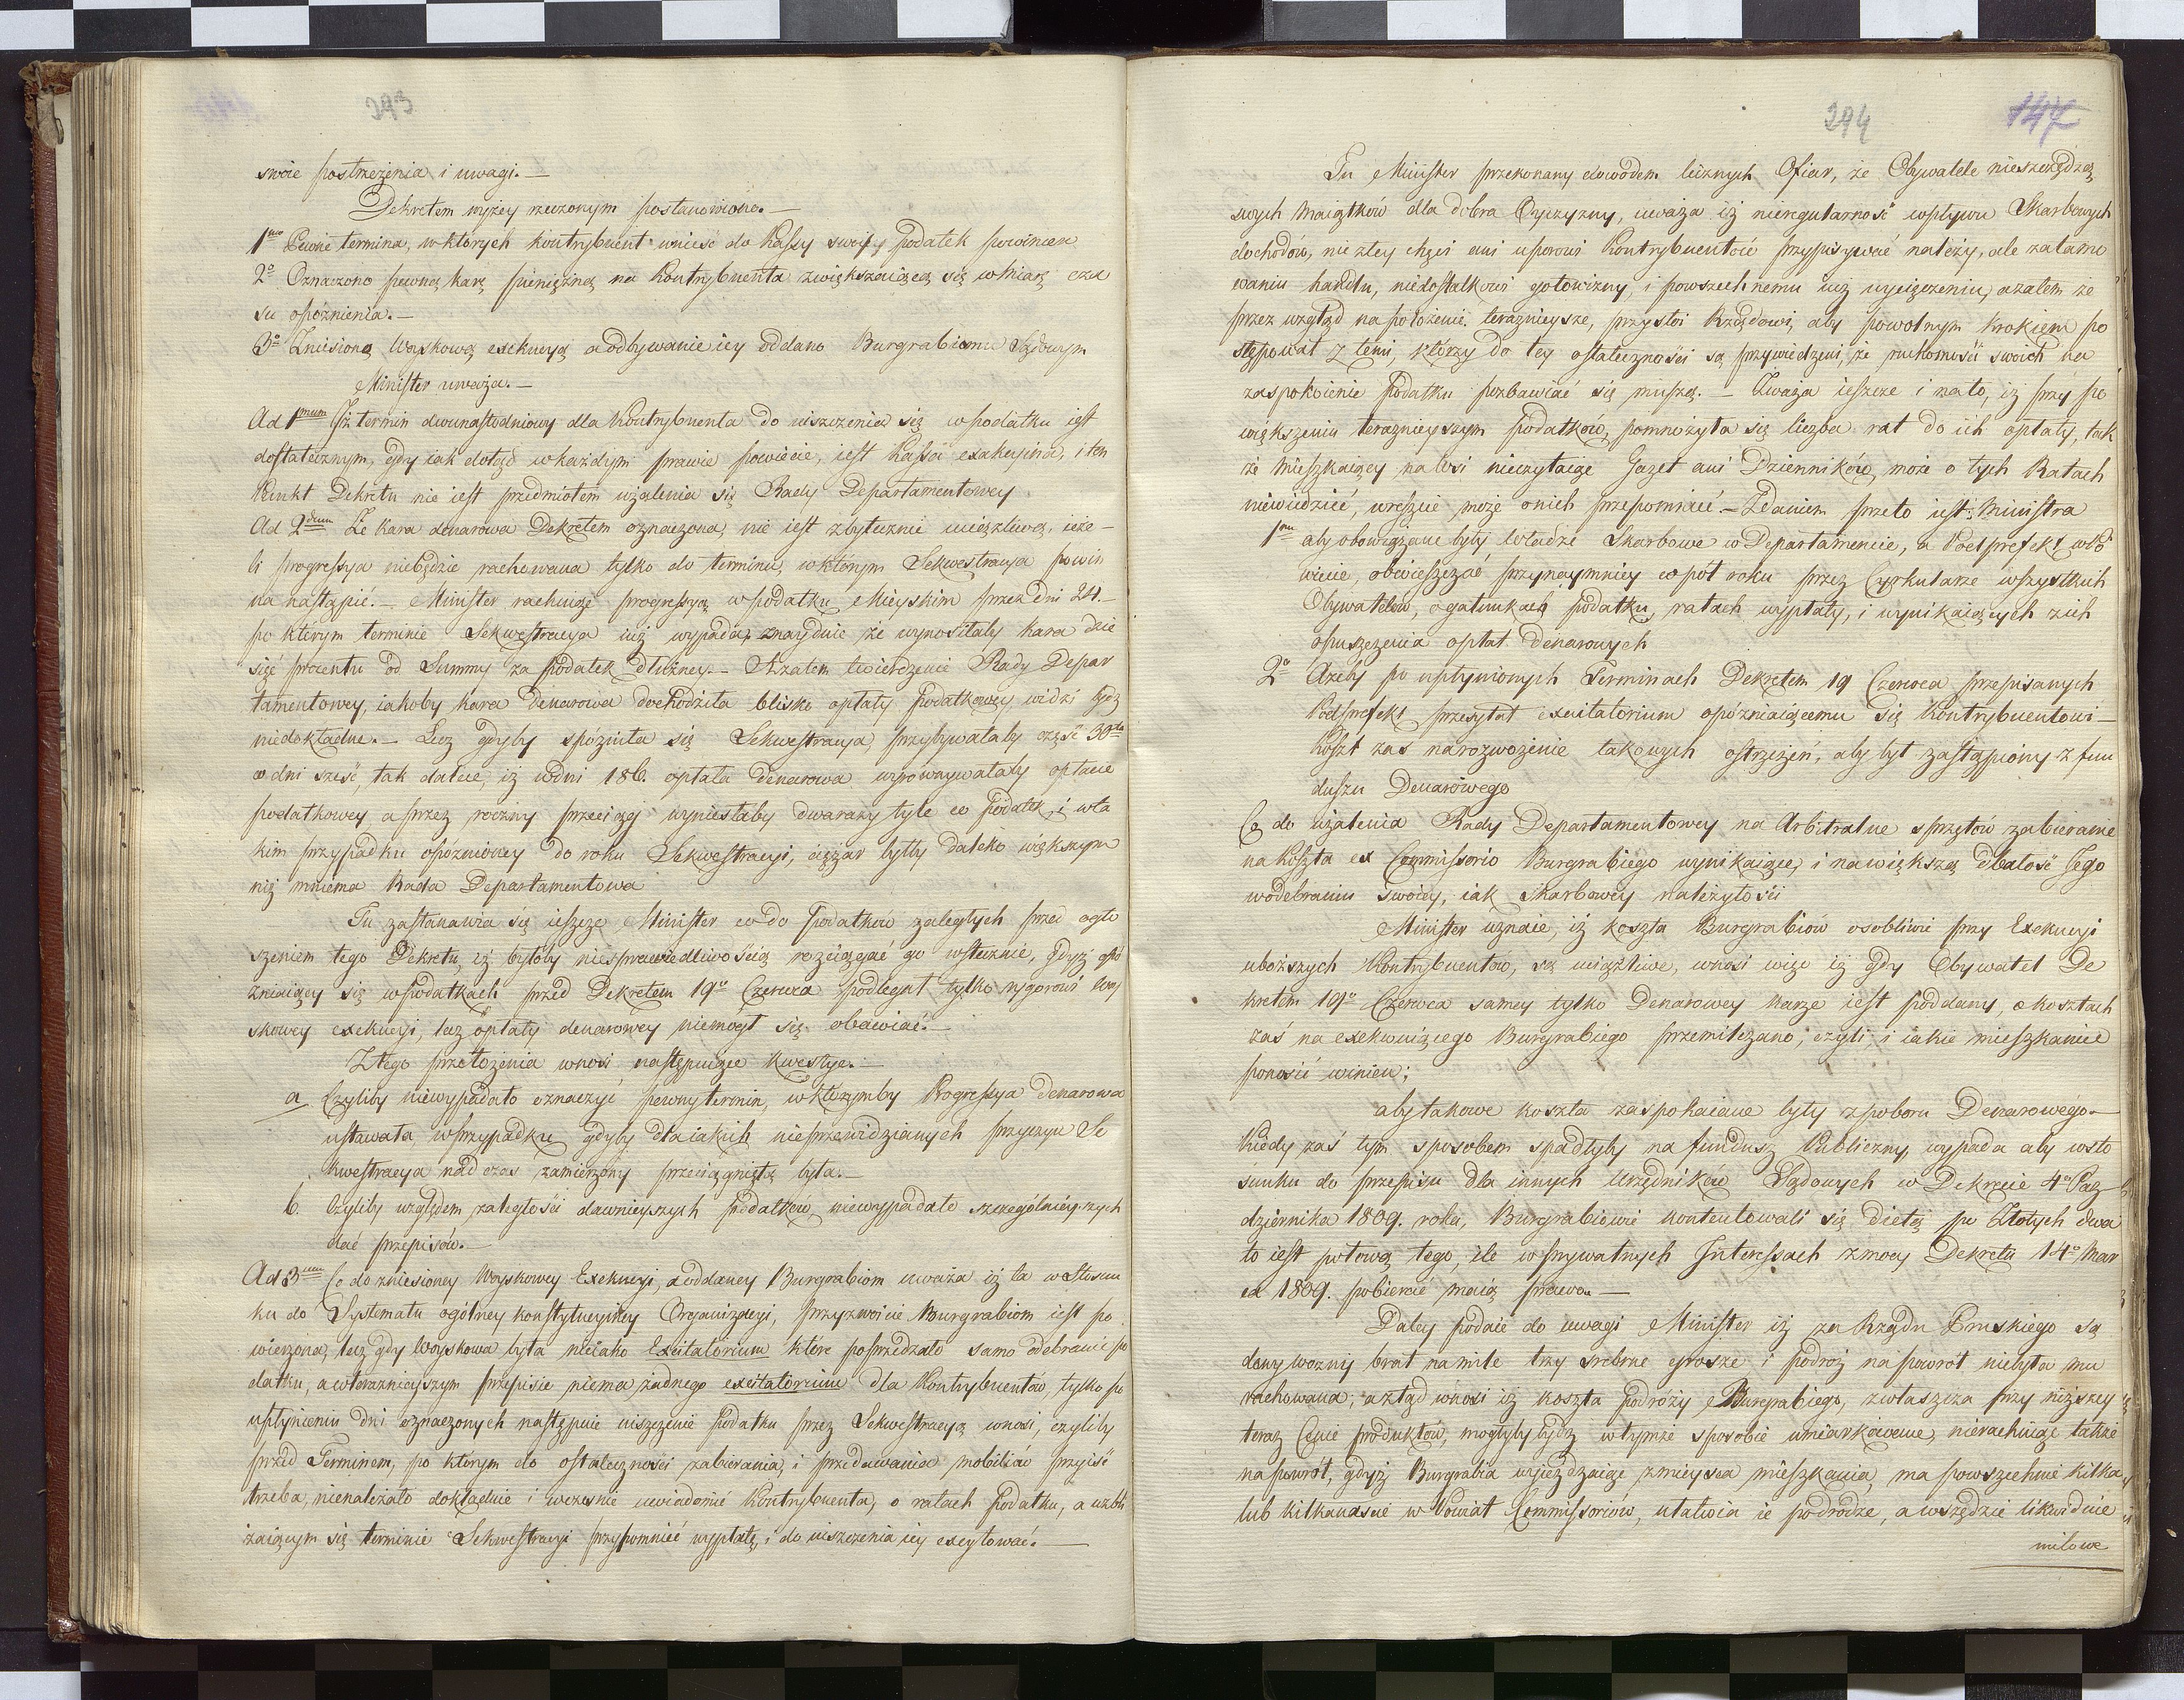 293
swoie postrzeżenia i uwagi.—
Dekretem wyżey rzeczonym postanowiono.—
1mo Pewne termina, w których kontrybuent wnieść do kassy swóy podatek powinien
2o Oznaczono pewną karę pieniężną na kontrybuenta zwiększaiącą się w miarę cza
su opóźnienia.—
3o Zniesiono Woyskową exekucyą a odbywanie iey oddano Burgrabiemu Sądowym
Minister uważa.—
Ad 1mum Iż termin dwunastodniowy dla kontrybuenta do uiszczenia się w podatku iest
dostatecznym, gdy iak dotąd w każdym prawie powiecie, iest Kassa exakcyina, i ten
Punkt Dekretu nie iest przedmiotem użalenia się Rady Departamentowey.
Ad 2dum Że kara denarowa Dekretem oznaczona, nie iest zbytecznie uciążliwą, ieże-
li progressya niebędzie rachowana tylko do terminu, w którym Sekwestracya powin
na nastąpić.— Minister rachuiąc progressyą w podatku Mieyskim przez dni 24.—
po którym terminie Sekwestracya iuż wypada, znayduie że wynosiłaby kara dzie
sięć procentu od Summy za podatek dłużney.— A zatem twierdzenie Rady Depar
tamentowey, iakoby kara Denarowa dochodziła blisko opłaty podatkowey widzi bydź
niedokładne.— Lecz gdyby spóźniła się Sekwestracya, przybywałaby część 30ta
co dni sześć, tak dalece, iż w dni 186. opłata denarowa wyrównywałaby opłacie
podatkowey a przez roczny przeciąg wyniosłaby dwa razy tyle co podatek, i w ta
kim przypadku opóźnioney do roku Sekwestracyi, ciężar byłby daleko większym
niż mniema Rada Departamentowa
Tu zastanawia się ieszcze Minister co do podatków zaległych przed ogło
szeniem tego Dekretu, iż byłoby niesprawiedliwością rozciągać go wstecznie, gdyż opó
źniaiący się w podatkach przed Dekretem 19o Czerwca podlegał tylko rygorowi woy
skowey exekucyi, lecz opłaty denarowey niemógł się obawiać.—
Z tego przełożenia wnosi następuiące kwestye.—
a. Czyliby niewypadało oznaczyć pewny termin, w którymby Progressya denarowa
ustawała w przypadku gdyby dla iakich nieprzewidzianych przyczyn Se
kwestracya nad czas zamierzony przeciągniętą była.—
b. Czyliby względem zaległości dawnieyszych podatków, niewypadało szczególnieyszych
dać przepisów.—
Ad 3um Co do zniesioney Woyskowey Exekucyi, a oddaney Burgrabiom uważa iż ta w Stosun
ku do Systematu ogólney konstytucyiney Organizacyi, przyzwoicie Burgrabiom iest po
wierzona, lecz gdy Woyskowa była nieiako Excitatorium które poprzedzało samo odebranie po
datku, a w teraznieyszym przepisie niema żadnego excitatorium dla Kontrybuentów, tylko po
upłynieniu dni oznaczonych następuie uiszczenie podatku przez Sekwestracyą wnosi, czyliby
przed Terminem, po którym do ostateczności zabierania, i przedawania mobiliów przyiść
trzeba, nienależało dokładnie i wcześnie uwiadomić Kontrybuenta, o ratach podatku, a w zbli
żaiącym się terminie Sekwestracyi przypomnieć wypłatę, i do uiszczenia iey excytować.—
294 147
Tu Minister przekonany dowodem licznych Ofiar, że Obywatele nieszczędzą
swych maiątków dla dobra Oyczyzny, uważa iż nieregularność wpływu Skarbowych
dochodów, nie złey chęci ani uporowi Kontrybuentów przypisywać należy, ale zatamo
waniu handlu, niedostatkowi gotowizny, i powszechnemu iuż wycięczeniu, a zatem że
przez wzgląd na położenie teraznieysze, przystoi Rządowi, aby powolnym krokiem po
stępował z temi, którzy do tey ostateczności są przywiedzeni, że ruchomości swoich na
zaspokoienie podatku pozbawiać się muszą.— Uważa ieszcze i na to, iż przy po
większeniu teraznieyszym podatków, pomnożyła się liczba rat do ich opłaty, tak
że mieszkaiący na wsi nieczytaiąc Gazet ani Dzienników, może o tych Ratach
niewiedzieć, wreszcie może o nich przepomnieć.— Żądaniem przeto iest Ministra
1mo aby obowiązane były władze Skarbowe w Departamencie, a Podprefekt w Po
wiecie, obwieszczać przynaymniey co pół roku przez Cyrkularze wszystkich
Obywatelów, o gatunkach podatku, ratach wypłaty, i wynikaiących z ich
opuszczenia opłat denarowych
2o Ażeby po upłynionych Terminach Dekretem 19 Czerwca przepisanych
Podprefekt przesyłał excitatorium opóźniaiącemu się Kontrybuentowi—
koszt zaś na rozwożenie takowych ostrzeżeń, aby był zastąpiony z fun
duszu Denarowego
Co do użalenia Rady Departamentowey na Arbitralne sprzętów zabieranie
na koszta ex Commissorio Burgrabiego wynikaiące, i na większą dbałość Jego
w odebraniu swoiey, iak Skarbowey należytości
Minister uznaie, iż koszta Burgrabiów osobliwie przy Exekucyi
uboższych Kontrybuentów, są uciążliwe, wnosi więc iż gdy Obywatel De
kretem 19o Czerwca samey tylko Denarowey karze iest poddany, o kosztach
zaś na exekwuiącego Burgrabiego przemilczano, czyli i iakie mieszkaniec
ponosić winien;
aby takowe koszta zaspokaiane były z poboru Denarowego.—
Kiedy zaś tym sposobem spadłyby na fundusz Publiczny, wypada aby w sto
sunku do przepisu dla innych Urzędników Sądowych w Dekrecie 4o Paź
dziernika 1809. roku, Burgrabiowie kontentowali się dietą po Złotych dwa
to iest połową tego, ile w prywatnych Interessach z mocy Dekretu 14o Mar
ca 1809. pobierać maią prawo.—
Daley podaie do uwagi Minister iż za Rządu Pruskiego Są
dowy woźny brał na milę trzy srebrne grosze i podróż na powrót niebyła mu
rachowana, a ztąd wnosi iż koszta podróży Burgrabiego, zwłaszcza przy niższey
teraz Cenie produktów, mogłyby bydź w tymże sposobie umiarkowane, nierachuiąc także
na powrót, gdyż Burgrabia wyieżdżaiąc z mieysca mieszkania, ma powszechnie kilka
lub kilkanaście w Powiat Commissoriów, ułatwia ie po drodze, a wszędzie likwiduie
milowe